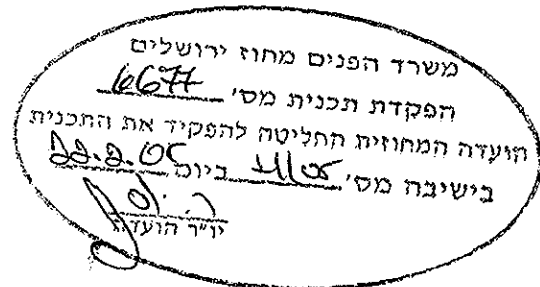 משרד הפנים מחוז ירושלים
הפקדת תכנית מס' 6677
הועדה המחוזית החליטה להפקיד את התכנית
בישיבה מס' ביום 22.2.05
יו"ר הועדה